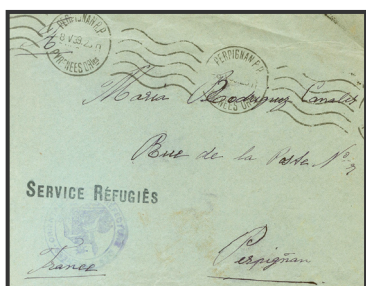 PERPIGNAN R.P.
PYRÉNÉES OR^les
PERPIGNAN R.P.
Maria Rodriguez Canalet
Rue de la Poste Nº
SERVICE RÉFUGIÉS
France
Perpignan